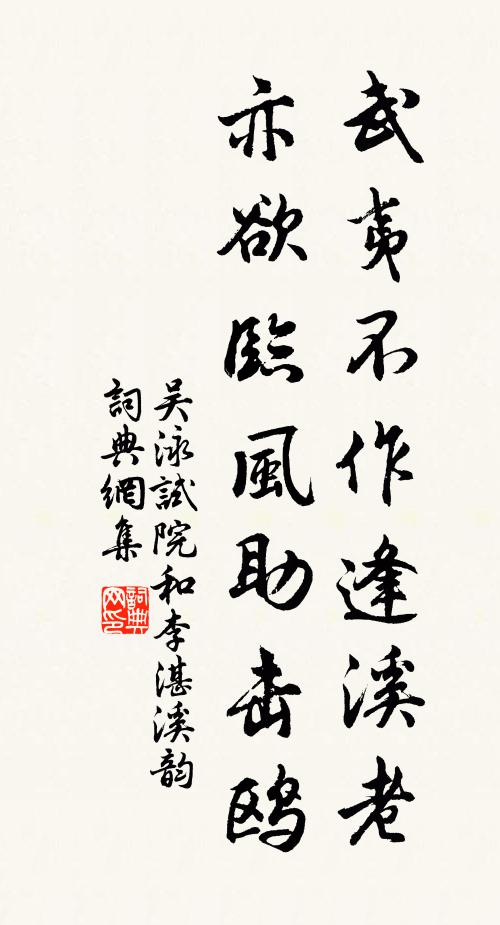 武夷不作逢溪老
亦欲臨風助击鸥
吴泳試院和李湛溪韵
詞典網集
詞典网印